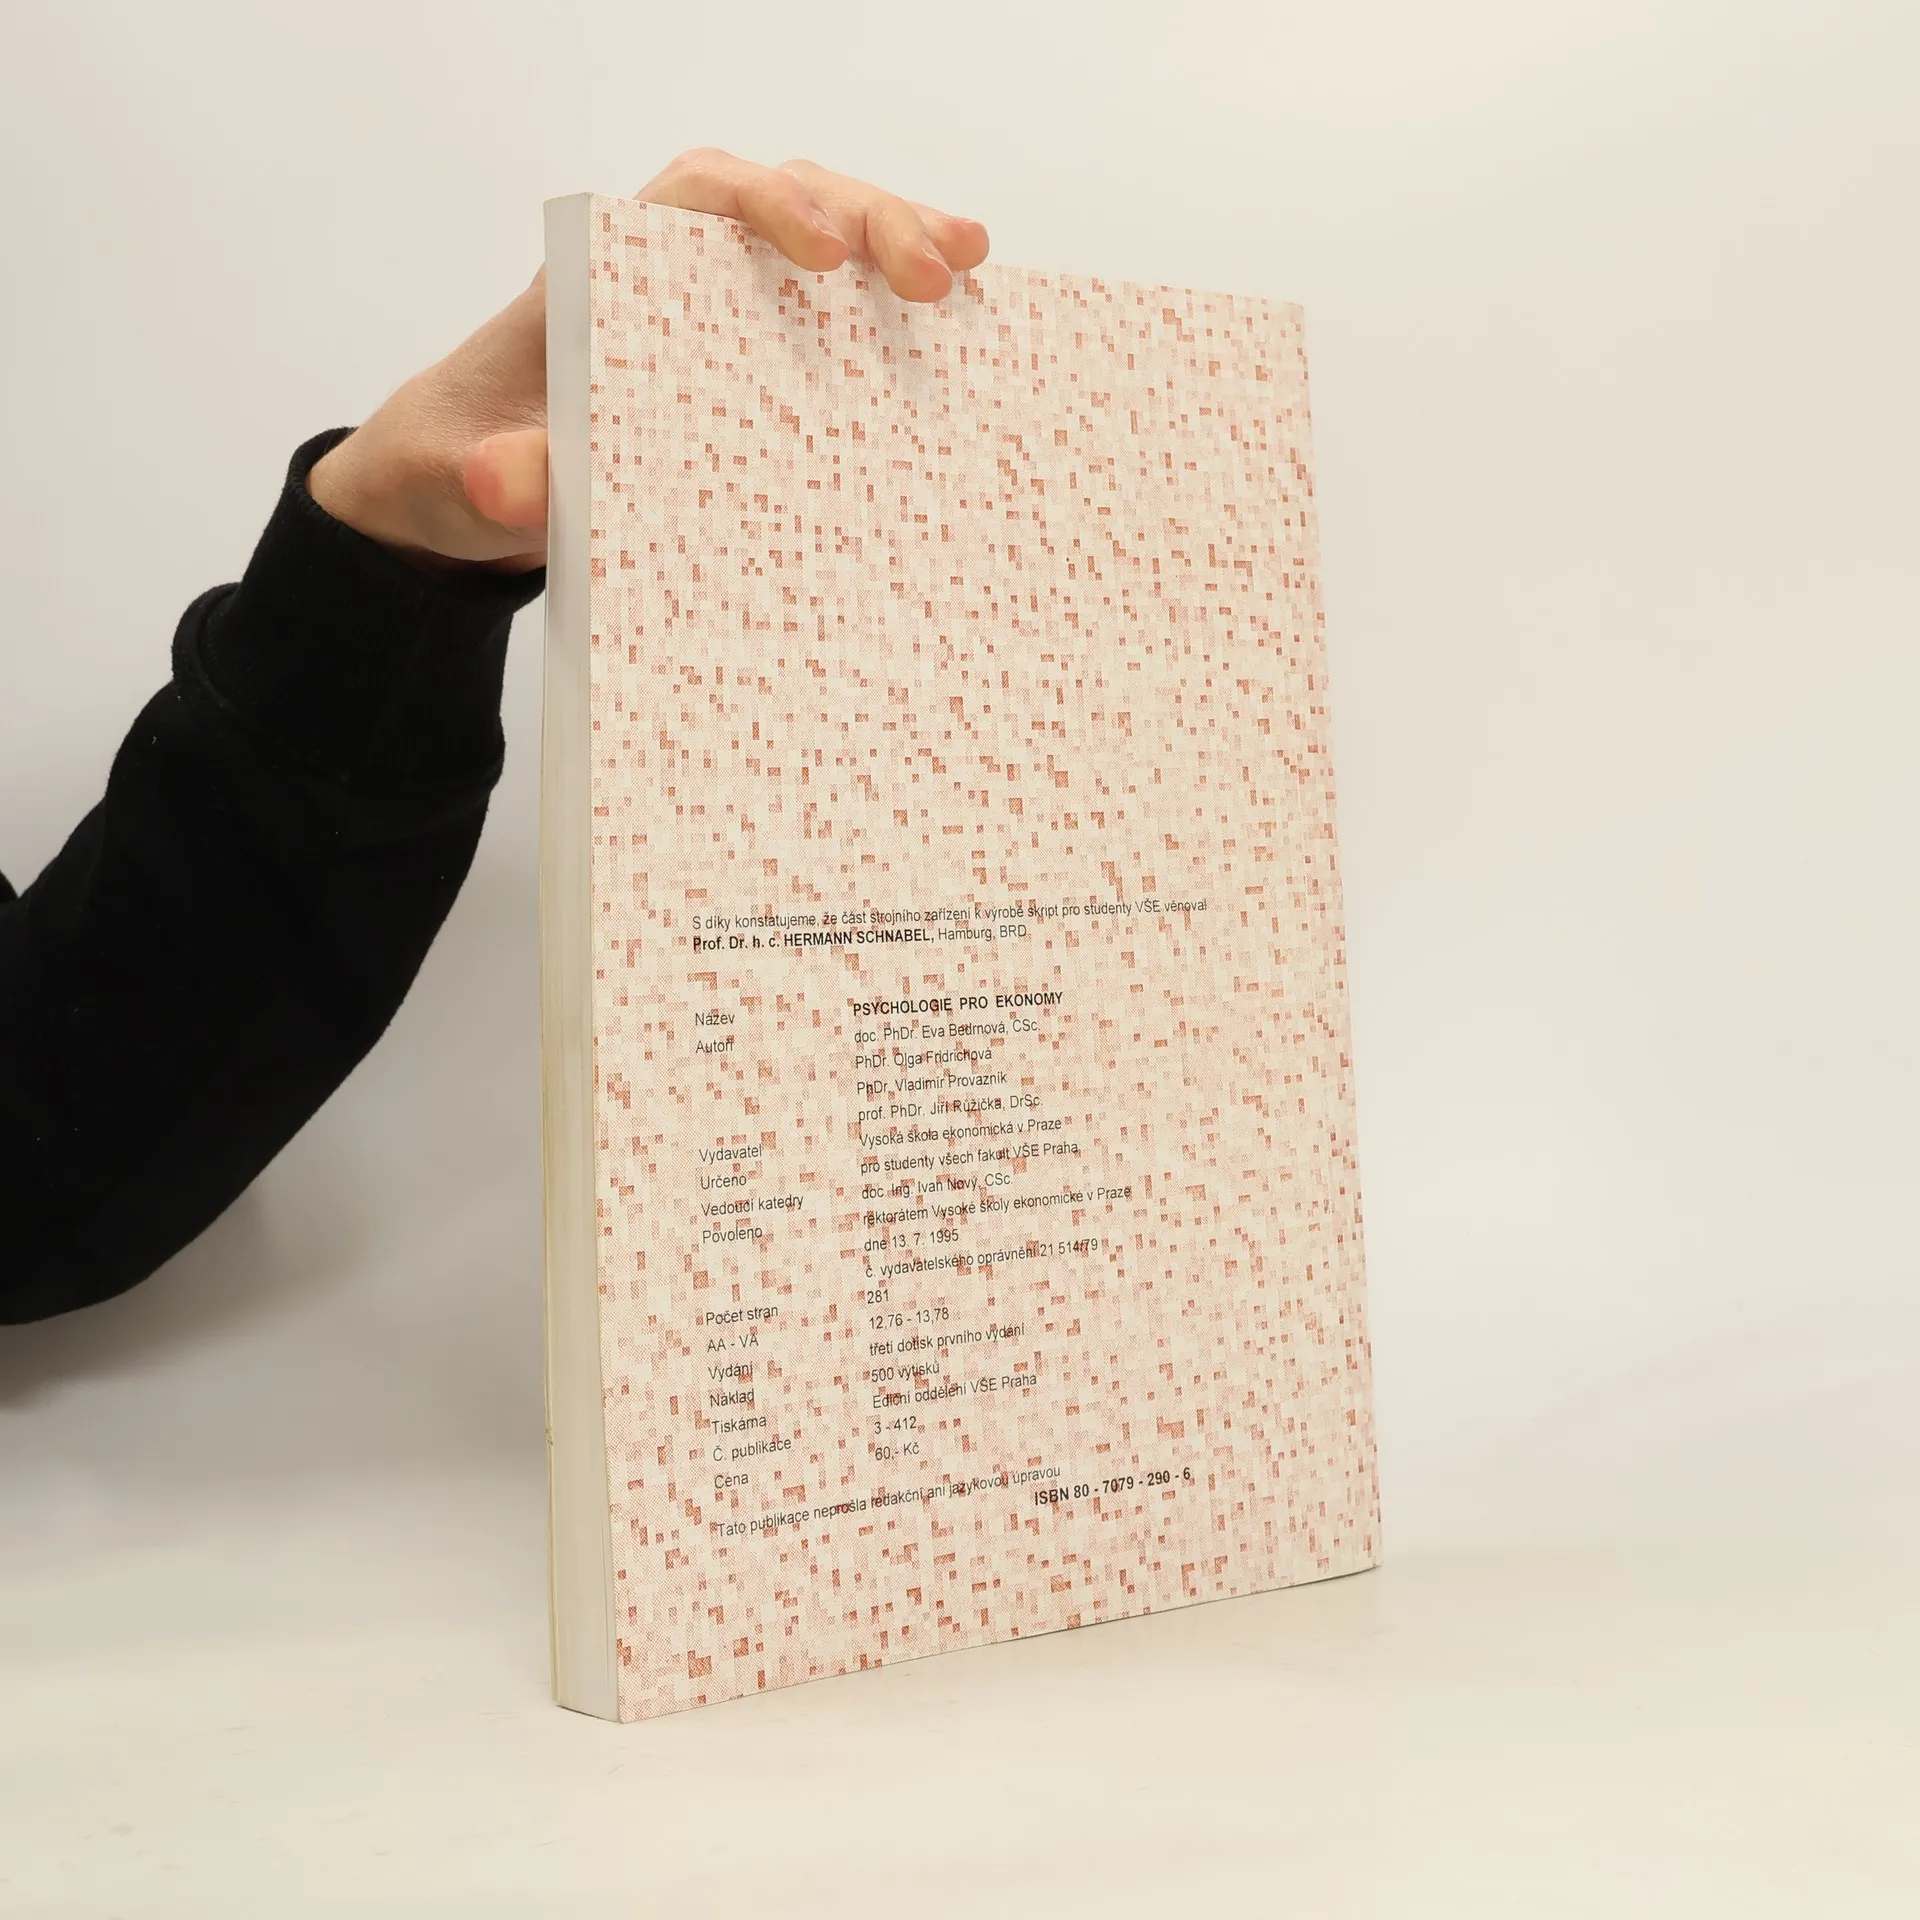 S díky konstatujeme, že část strojního zařízení k výrobě skript pro studenty VŠE věnoval
Prof. Dr. h. c. HERMANN SCHNABEL, Hamburg, BRD
Název PSYCHOLOGIE PRO EKONOMY
Autoři doc. PhDr. Eva Bedrnová, CSc.
PhDr. Olga Fridrichová
PhDr. Vladimír Provazník
prof. PhDr. Jiří Růžička, DrSc.
Vydavatel Vysoká škola ekonomická v Praze
Určeno pro studenty všech fakult VŠE Praha
Vedoucí katedry doc. Ing. Ivan Nový, CSc.
Povoleno rektorátem Vysoké školy ekonomické v Praze
dne 13. 7. 1995
č. vydavatelského oprávnění 21 514/79
Počet stran 281
AA - VA 12,76 - 13,78
Vydání třetí dotisk prvního vydání
Náklad 500 výtisků
Tiskárna Ediční oddělení VŠE Praha
Č. publikace 3 - 412
Cena 60,- Kč
Tato publikace neprošla redakční ani jazykovou úpravou
ISBN 80 - 7079 - 290 - 6